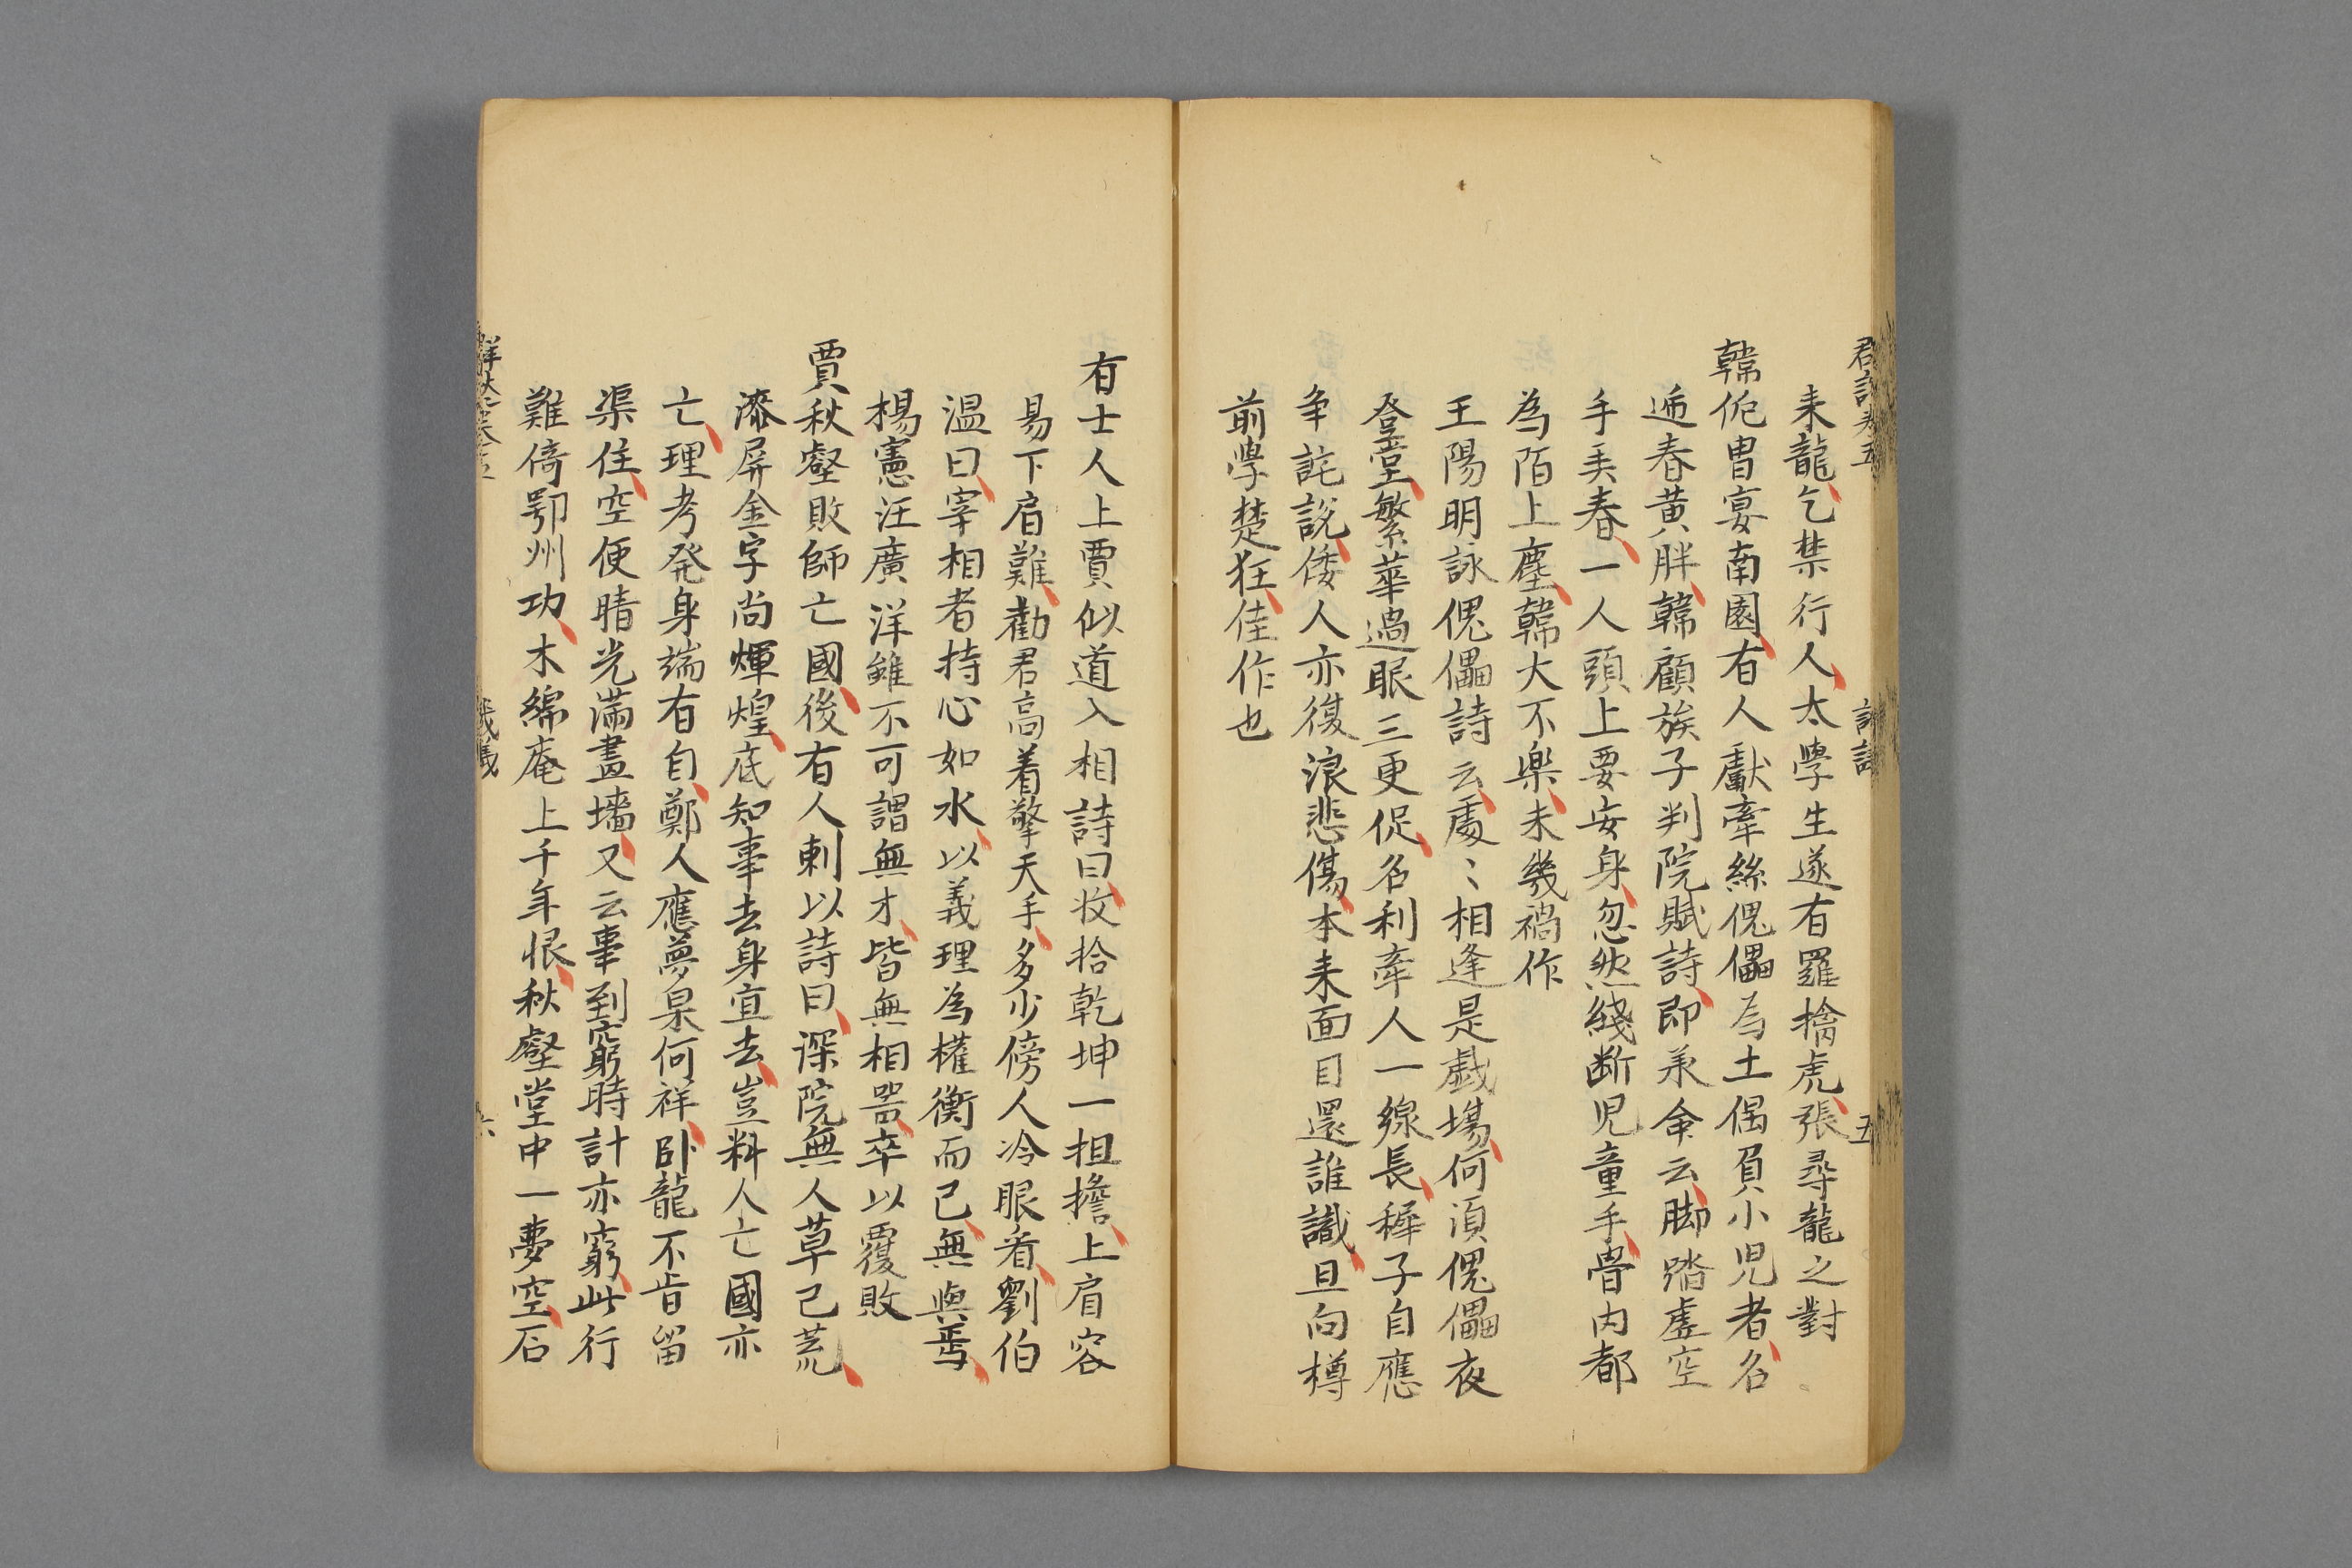 来龍乞禁行人太學生遂有羅擒虎張尋龍之對
韓侂冑宴南園有人獻牽絲傀儡為土偶負小児者名
迊春黄胖韓顧族子判院賦詩即承命云脚踏虚空
手弄春一人頭上要安身忽然綫断児童手骨肉都
為陌上塵韓大不樂未幾禍作
王陽明詠傀儡詩云處〻相逢是戱塲何湏傀儡夜
登堂繁華過眼三更促名利牽人一線長穉子自應
争詫説倭人亦復浪悲傷本来面目還誰識且向樽
前學楚狂佳作也
有士人上賈似道入相詩曰收拾乾坤一担擔上肩容
易下肩難勸君高着擎天手多少傍人冷眼看劉伯
温曰宰相者持心如水以義理為權衡而已無與焉
楊憲汪廣洋雖不可謂無才皆無相噐卒以覆敗
賈秋壑敗師亡國後有人刺以詩曰深院無人草已荒
漆屏金字尚煇煌底知事去身宜去豈料人亡國亦
亡理考発身端有自鄭人應夢杲何祥卧龍不肯留
渠住空便晴光滿畫墻又云事到窮時計亦窮此行
難倚鄂州功木綿庵上千年恨秋壑堂中一夢空石